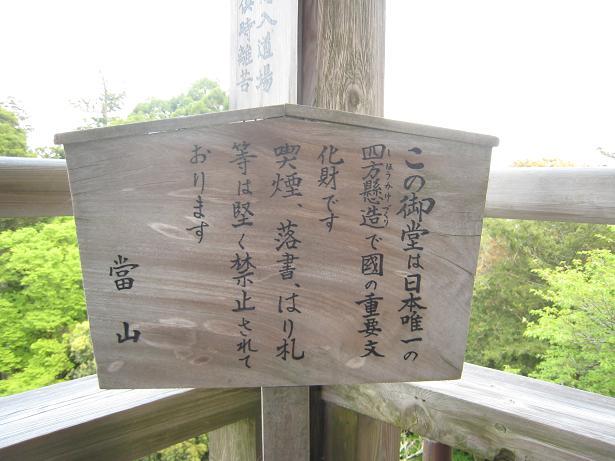 この御堂は日本唯一の
四方懸造で國の重要文
しほうかけづくり
化財です
喫煙、落書、はり札
等は堅く禁止されて
おります
當山
入道場
時離苦